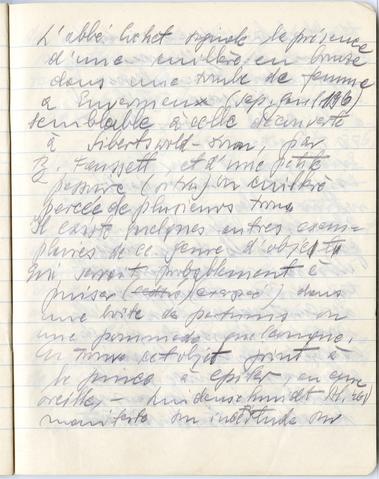 L'abbé Cochet signale la présence
d'une cuillère en bronze
dans une tombe de femme
à Envermeu (sép. gaul. 196)
semblable à celle découverte
à Sibertswold-Down, par
B. Faussett, et d'une petite
passoire ou cuillère
percée de plusieurs trous
Il existe quelques autres exem-
plaires de ce genre d'objets
qui servait probablement à
puiser () dans
une boite de parfums ou
une pommade quelconque.
On trouve cet objet joint à
la pince à épiler, au cure
oreille, - Lindenschmidt 461
manifeste son incertitude sur